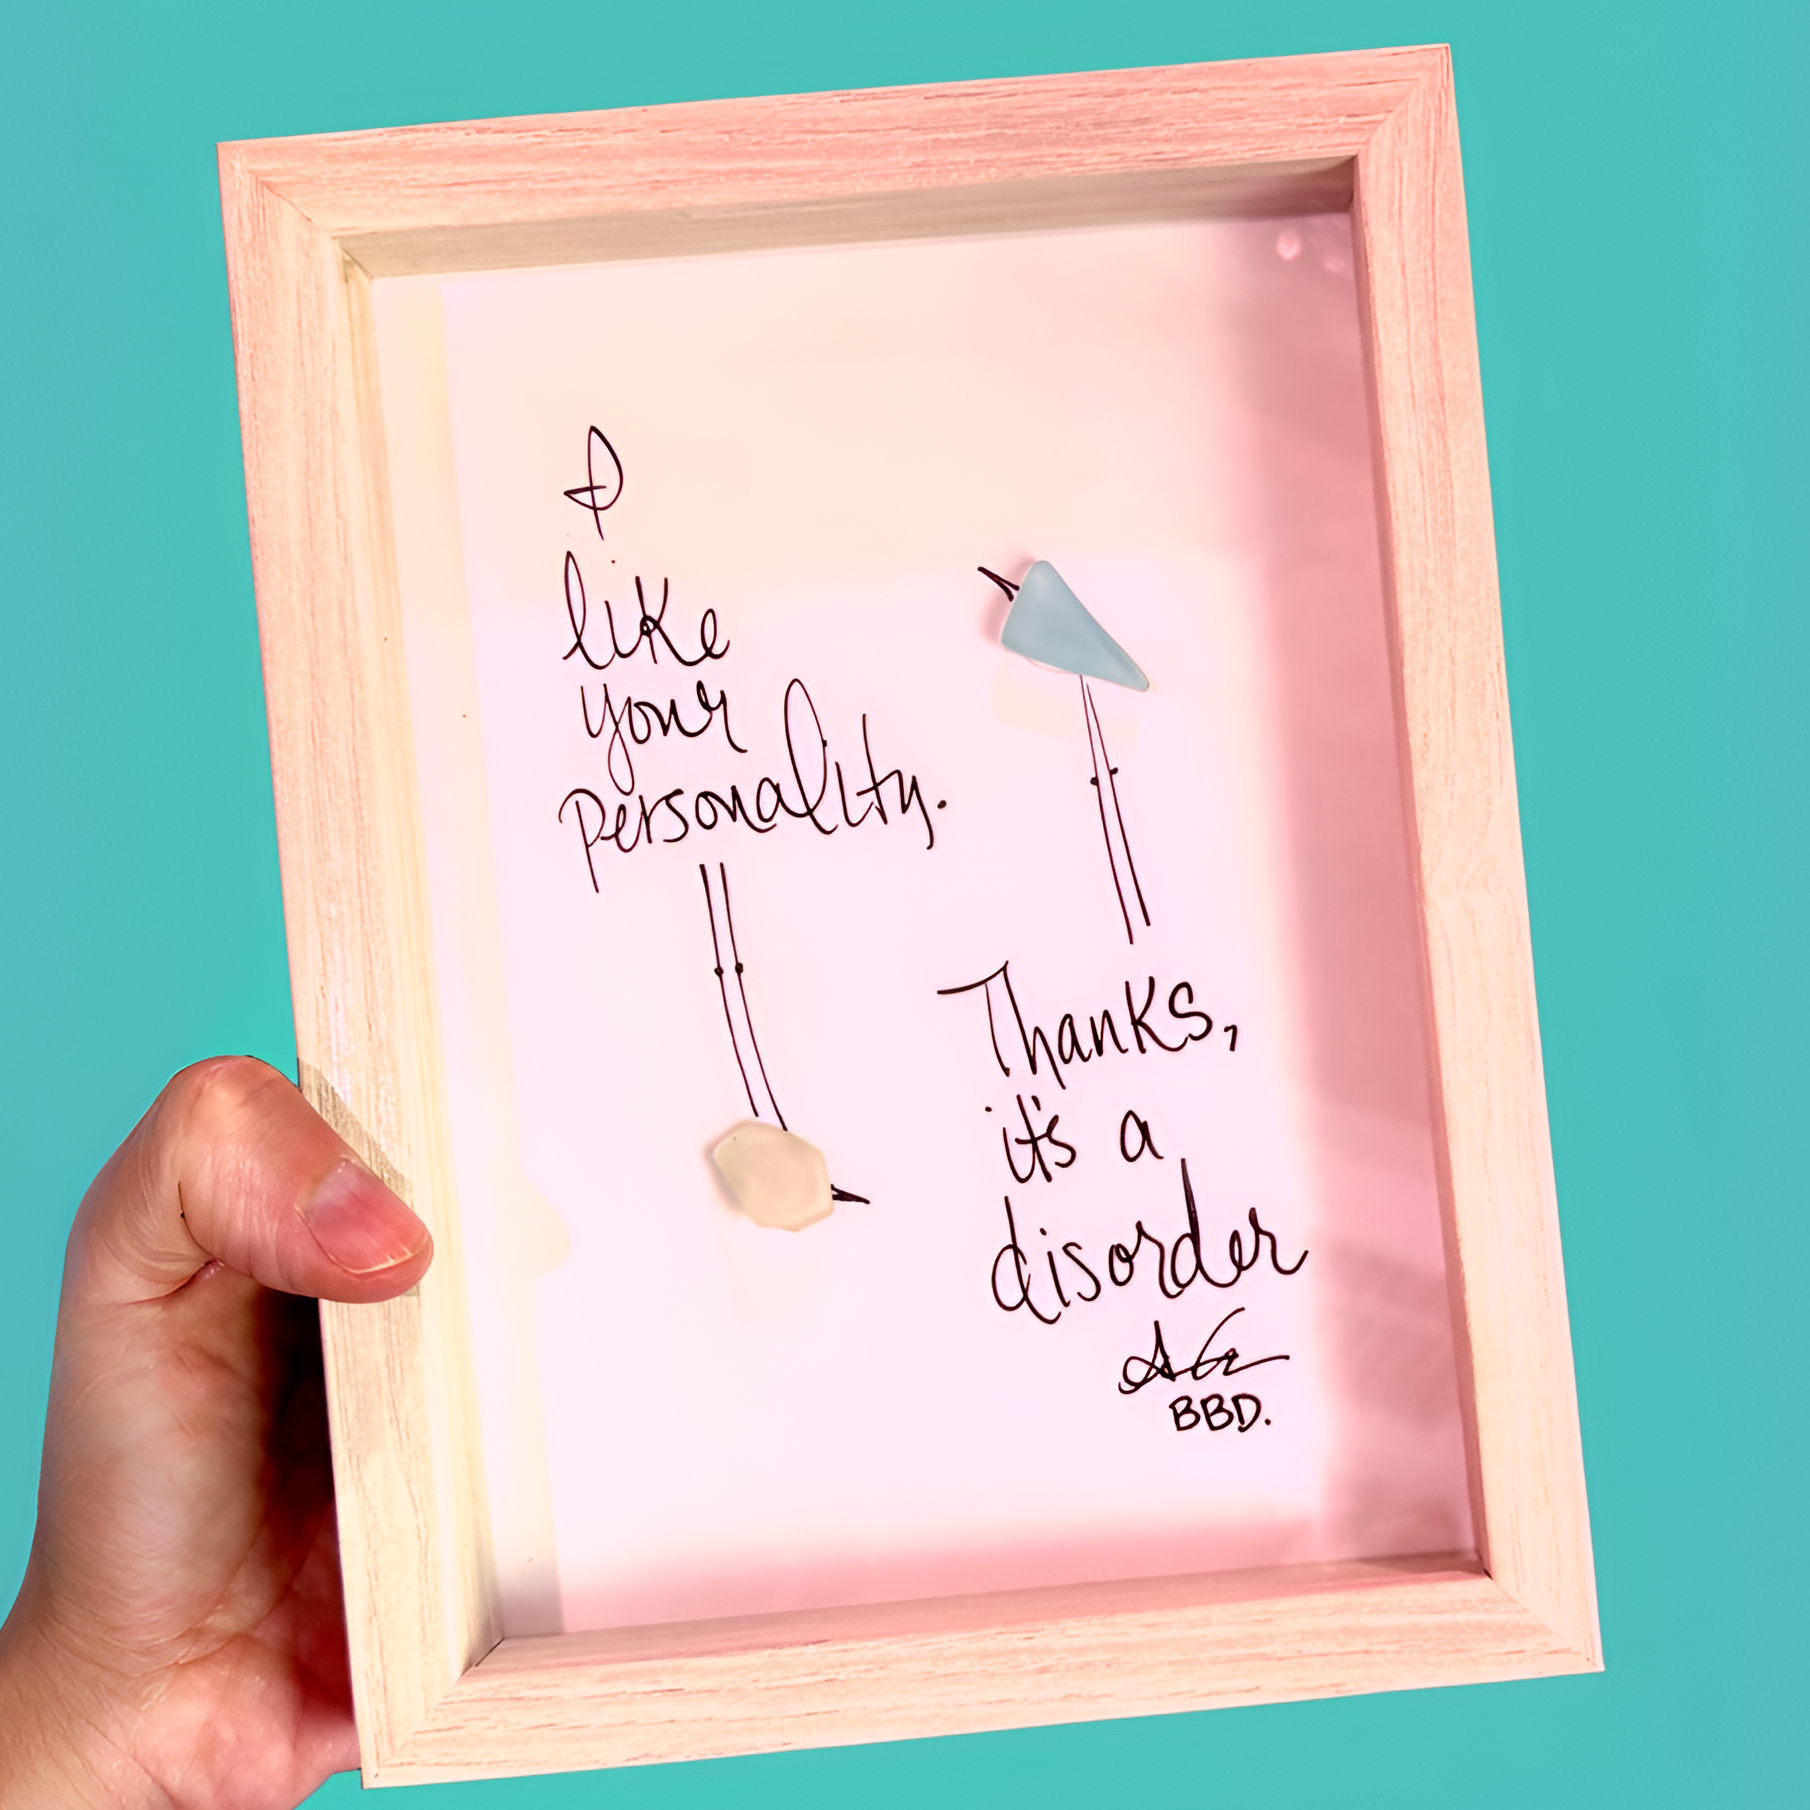 I
like
your
personality.
Thanks,
it's a
disorder
BBD.